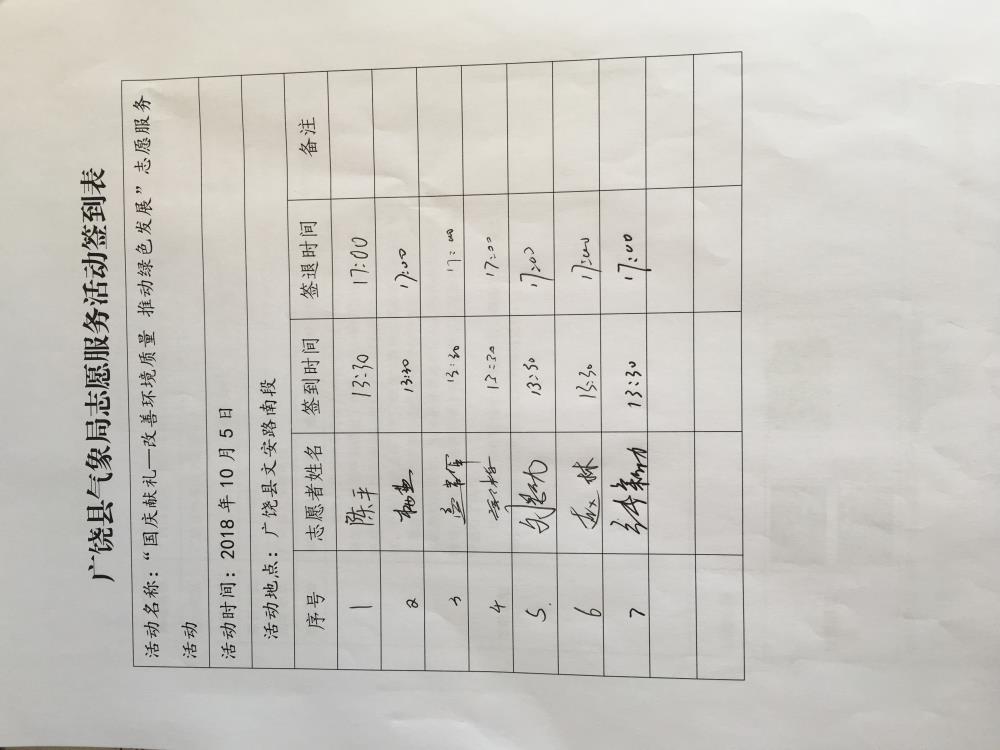 广饶县气象局志愿服务活动签到表
活动名称：“国庆献礼—改善环境质量 推动绿色发展”志愿服务
活动
活动时间：2018年10月5日
活动地点：广饶县文安路南段
序号 志愿者姓名 签到时间 签退时间 备注
1 陈平 13:30 17:00
2 13:30 17:00
3 13:30 17:00
4 13:30 17:00
5. 13:30 17:00
6 赵林 13:30 17:00
7 13:30 17:00